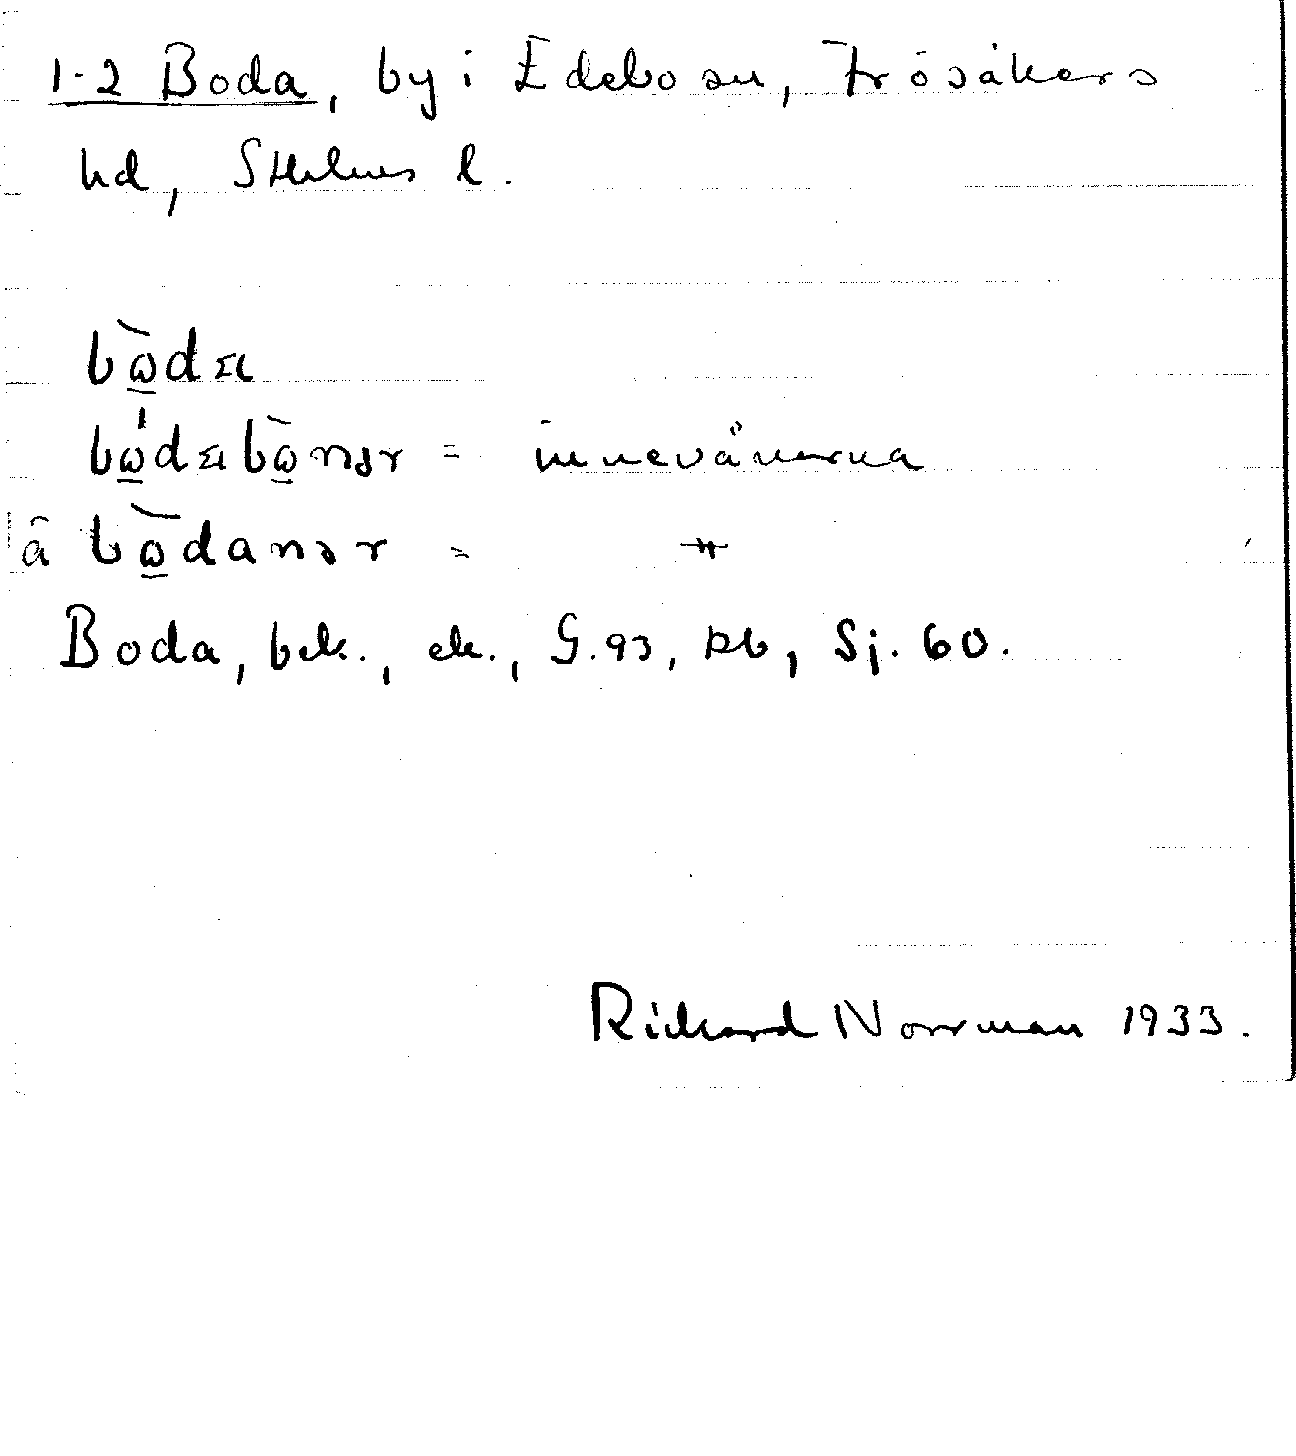 1-2 Boda, by i Edebo sn, Frösåkers
hd, Sthlms l.
bὼ̲da
bώ̲dabὼ̲nər = innevånarna
å bὼ̲danər = -"-
Boda, bek., ek., G.93, kb, Sj. 60.
Rickard Norrman 1933.